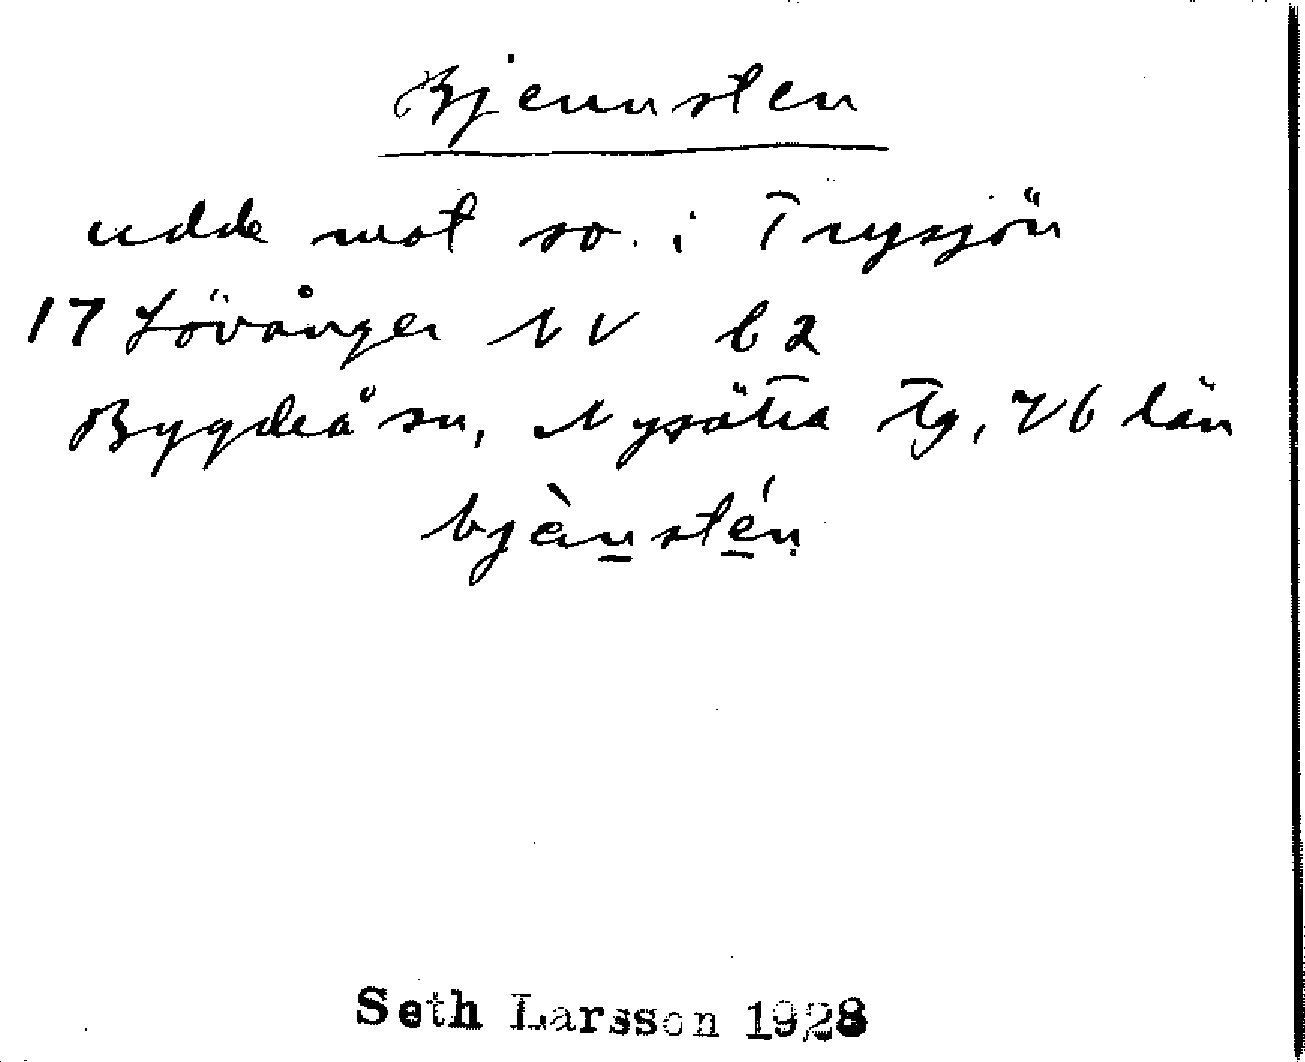 Bjennsten
udde mot so. i Trysjön
17 Lövånger NV b2
Bygdeå sn, Nysätra Tg, Vb län
bjènstén
Seth Larsson 1928